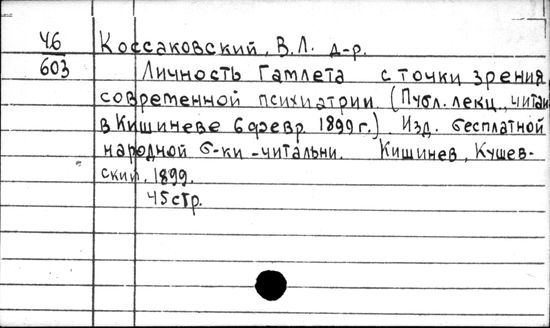 Ч6 Коссаковский, В.Л. д-р.
603 Личность Гамлета с точки зрения
современной психиатрии. (Публ. лекц., читан.
в Кишиневе 6 февр. 1899 г.). Изд. бесплатной
народной б-ки-читальни. Кишинев, Кушев-
ский, 1899.
45 стр.